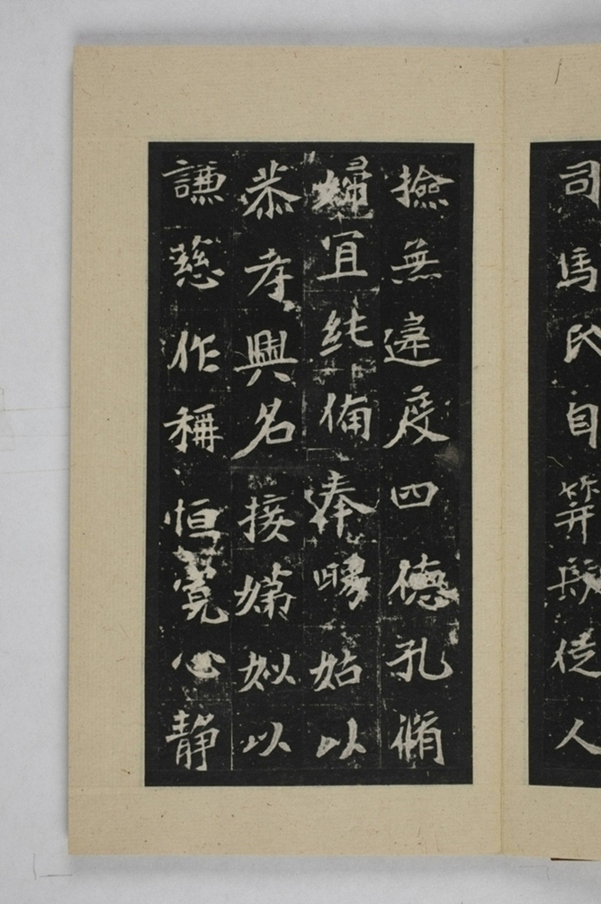 司馬氏自笄髮從人
撿無違度四德孔脩
婦宜純備奉舅姑以
恭孝興名接娣姒以
謙慈作稱恒寬心靜